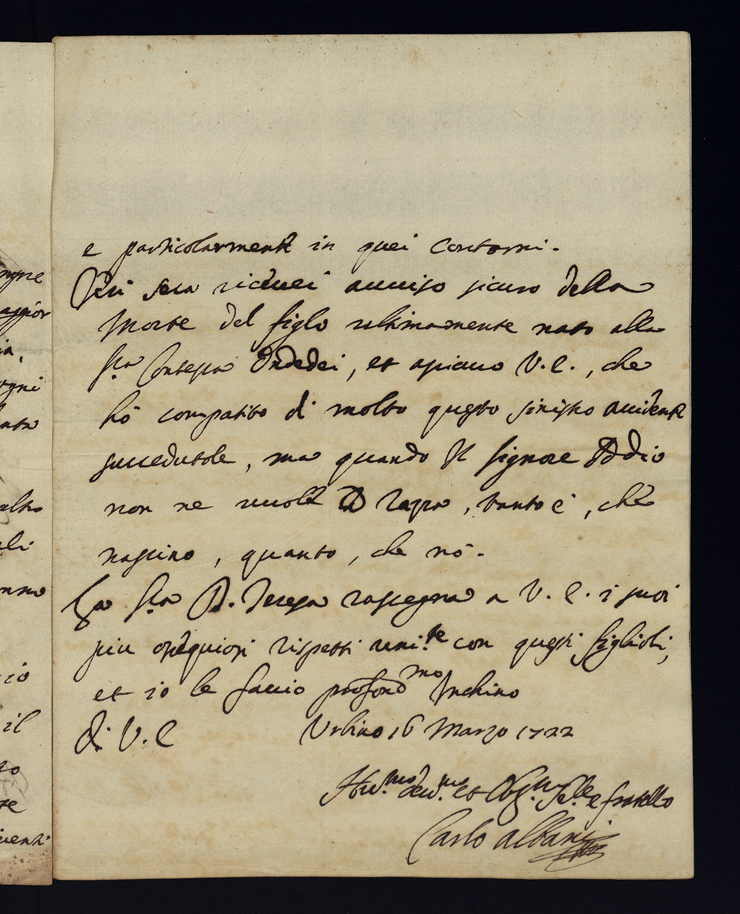 e particolarmente in quei Contorni.
Ieri sera riceuei auuiso sicuro della
Morte del figlo ultimamente nato alla
Sra Contessa Ordedei, et assicuro V. E., che
hò compatito di molto questo sinistro accidente
succedutole, ma quando Il Signore Iddio
non ne uuole razza, tanto è, che
naschino, quanto, che nò.
La Sra D. Teresa rassegna a V. E. i suoi
piu ossequiosi rispetti unite con questi figlioli,
et io le faccio profondmo Inchino
Di V. E Urbino 16 Marzo 1722
Hu.mo deu.mo et Obg.mo Se.re e fratello
Carlo Albani
ogni
alto
il